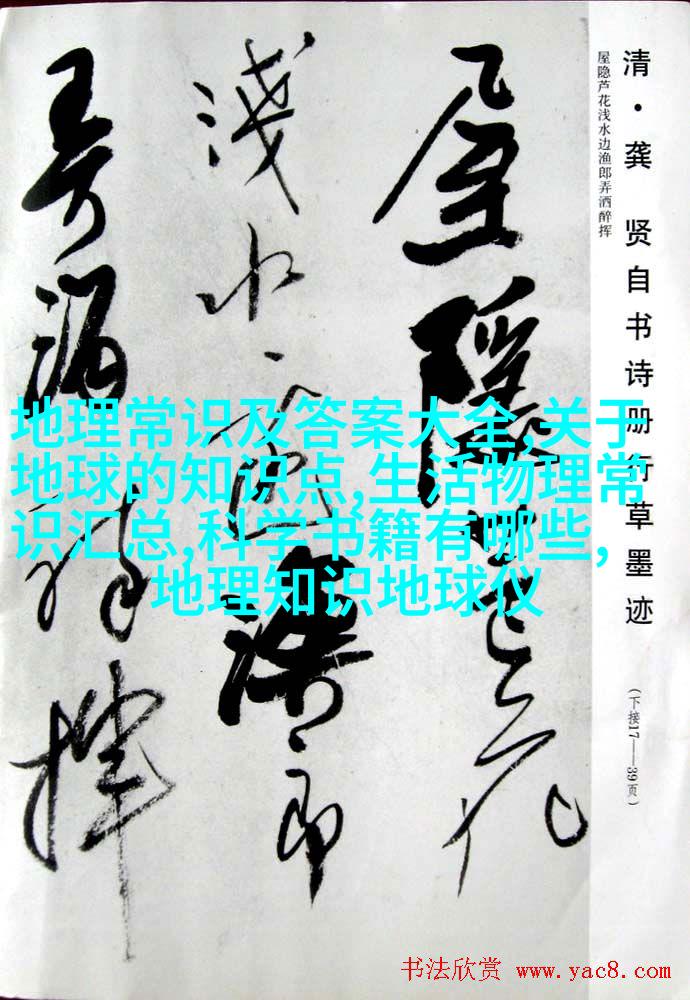 清·龚 贤自书诗册行草墨迹
屋隐芦花浅水边渔郎弄酒醉挥
(下接17——39页)
屋隐芦花
浅水边渔郎
弄酒醉挥
地理常识及答案大全,关于
地球的知识点,生活物理常
识汇总,科学书籍有哪些,
地理知识地球仪
书法欣赏 www.yac8.com